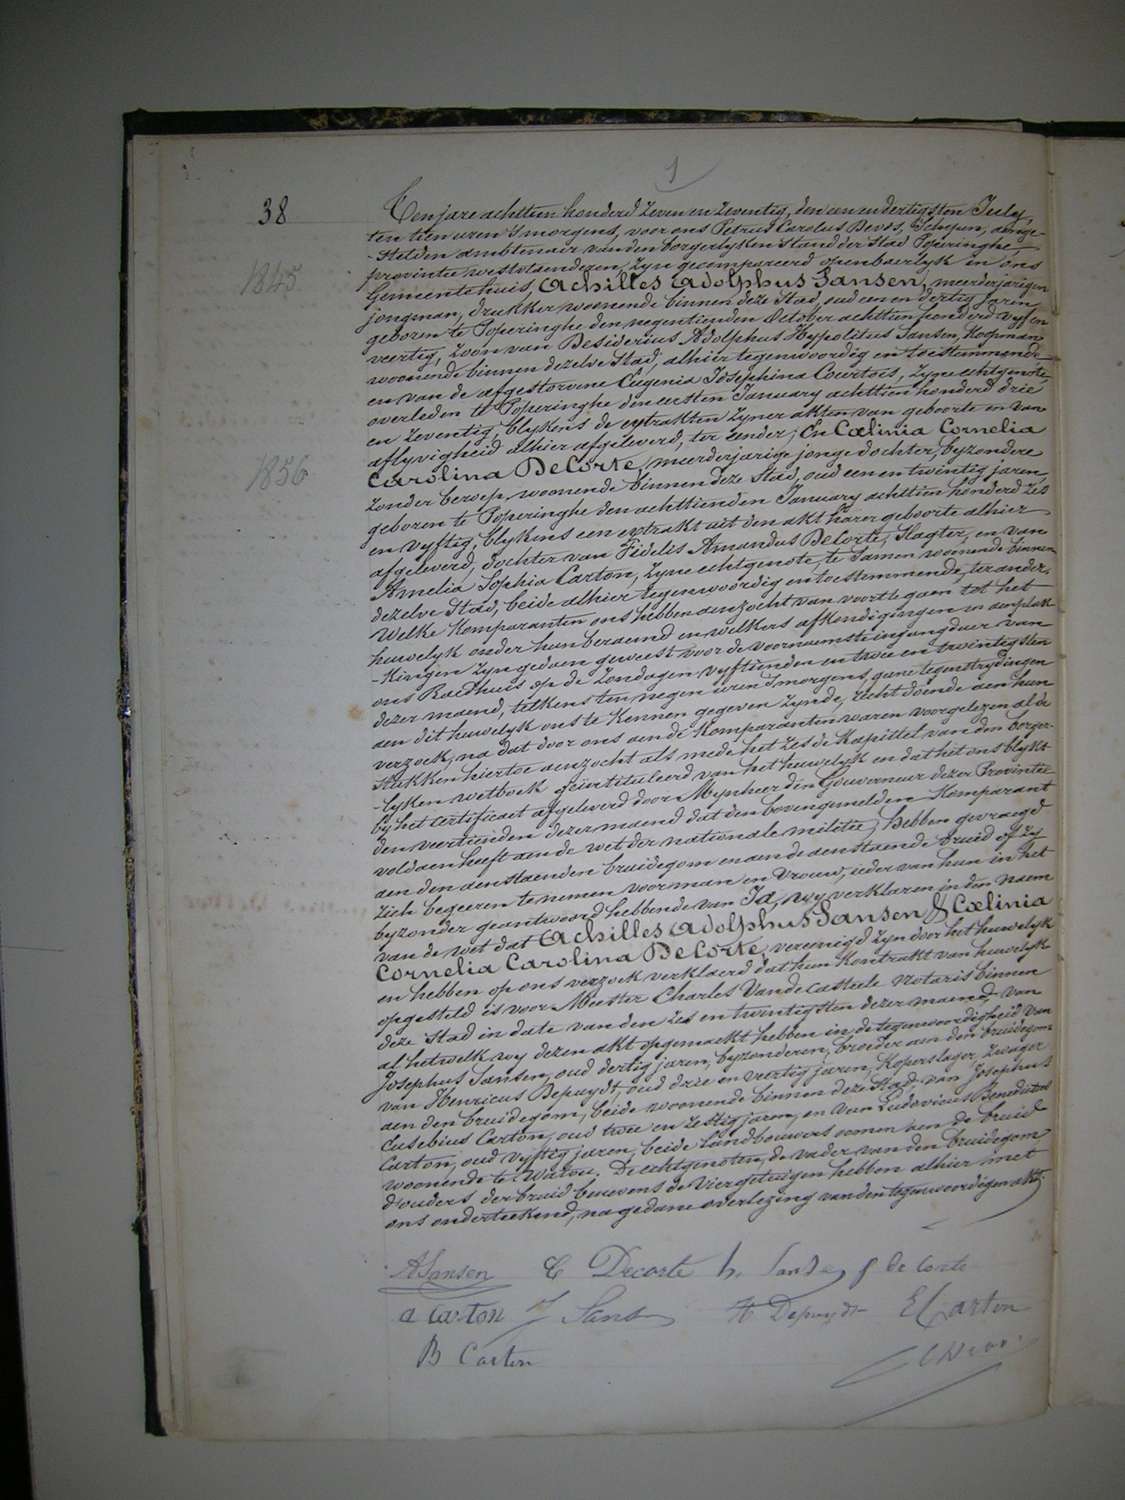 1
38
Ten jare achttien honderd zeven en zeventig, den een en dertigsten July,
ten tien uren s'morgens, voor ons Petrus Carolus Devos, Schepen, aenge-
-stelden ambtenaer van den borgerlyken stand der Stad Poperinghe,
provintie westvlaenderen, zyn gecompareerd openbaerlyk in ons
1845
Gemeentehuis, Achilles Adolphus Sansen, meerderjarigen
jongman, drukker woonende binnen deze Stad, oud een en dertig jaren
geboren te Poperinghe den negentienden October achttien honderd vyf en
veertig, zoon van Desiderius Adolphus Hypolitus Sansen, Koopman
woonende binnen dezelve Stad, alhier tegenwoordig en toestemmende
en van de afgestorvene Eugenia Josephina Courtois, zyne echtgenote,
overleden te Poperinghe den eersten January achttien honderd drie
en zeventig, blykens de extrakten zyner akten van geboorte en van
aflyvigheid alhier afgeleverd, ter eender; En Cœlinia Cornelia
1856
Carolina DeCorte, meerderjarige jonge dochter, byzondere
zonder beroep, woonende binnen deze Stad, oud een en twintig jaren,
geboren te Poperinghe den achttienden January achttien honderd zes
en vyftig, blykens een extrakt uit den akt harer geboorte alhier
afgeleverd, dochter van Fidelis Amandus DeCorte, Slagter, en van
Amelia Sophia Carton, zyne echtgenote, te samen woonende binnen
dezelve Stad, beide alhier tegenwoordig en toestemmende, ter ander.
Welke Komparanten ons hebben aenzocht van voorttegaen tot het
huwelyk onder hun beraemd en welkers afkondigingen en aenplak-
-kingen zyn gedaen geweest voor de voornaemste ingangdeur van
ons Raedhuis op de zondagen vyftienden en twee en twintigsten
dezer maend, telkens ten negen uren s'morgens, gene tegenstrydingen
aen dit huwelyk ons te kennen gegeven zynde, recht doende aen hun
verzoek, na dat door ons aen de Komparanten waren voorgelezen al de
stukken hiertoe aenzocht als mede het zesde Kapittel van den borger-
-lyken wetboek geïntituleerd van het huwelyk en dat het ons blykt
by het certificaet afgeleverd door Mynheer den Gouverneur dezer Provintie
den veertienden dezer maend dat den bovengemelden Komparant
voldaen heeft aen de wet der nationale militie, hebben gevraegd
aen den aenstaenden bruidegom en aen de aenstaende bruid of zy
zich begeeren te nemen voor man en vrouw; ieder van hun in het
byzonder geantwoord hebbende van Ja, wy verklaren in den naem
van de wet dat Achilles Adolphus Sansen & Cœlinia
Cornelia Carolina DeCorte, vereenigd zyn door het huwelyk
en hebben op ons verzoek verklaerd dat hun Kontrakt van huwelyk
opgesteld is voor Meester Charles Vandecasteele Notaris binnen
deze Stad in date van den zes en twintigsten dezer maend, van
al hetwelk wy dezen akt opgemaekt hebben in de tegenwoordigheid van
Josephus Sansen, oud dertig jaren, byzonderen, broeder aen den bruidegom
van Henricus Depuydt, oud drie en veertig jaren, Koperslager, Zwager
aen den bruidegom, beide woonende binnen deze Stad van Josephus
Eusebius Carton, oud twee en zestig jaren, en van Ludovicus Benedictus
Carton, oud vyftig jaren, beide Landbouwers oomen aen de bruid
woonende te Watou, De echtgenoten, de vader van den bruidegom
d'ouders der bruid benevens de Vier getuigen hebben alhier met
ons onderteekend, na gedane overlezing van den tegenwoordigen akt.
ASansen C Decorte h. Sansen f de Corte
a Carton J Sansen H Depuydt E Carton
B Carton